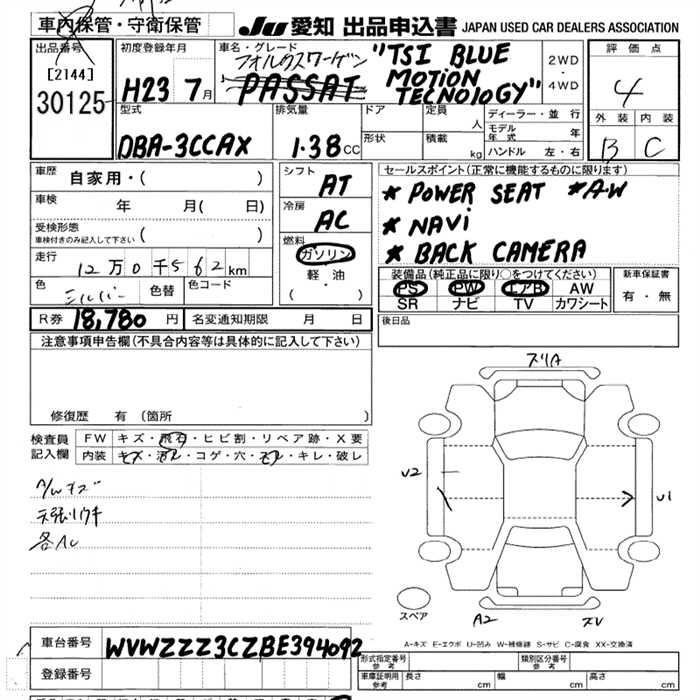 車内保管・守衛保管
JU 愛知 出品申込書 JAPAN USED CAR DEALERS ASSOCIATION
出品番号
[2144]
30125
初度登録年月
H23 7月
車名・グレード
フォルクスワーゲン
PASSAT
"TSI BLUE
MOTION
TECNOLOGY"
2WD
・
4WD
評価点
4
外装 内装
B C
型式
DBA-3CCAX
排気量
1.38cc
ドア
形状
定員 人
積載 kg
ディーラー・並行
モデル年式 年
ハンドル 左・右
車歴 自家用・( )
車検 年 月( 日)
受検形態
車検付きのみ記入して下さい ( )
走行 12万0千562km
色 シルバー 色替 色コード
シフト AT
冷房 AC
燃料
ガソリン
軽油
( ・ )
セールスポイント(正常に機能するものに限ります)
* POWER SEAT * A-W
* NAVi
* BACK CAMERA
装備品(純正品に限り○をつけてください)
PS PW エアB AW
SR ナビ TV カワシート
新車保証書
有・無
R券 18,780円 名変通知期限 月 日
後日品
注意事項申告欄(不具合内容等は具体的に記入して下さい)
修復歴 有(箇所 )
検査員
記入欄
FW キズ・飛石・ヒビ割・リペア跡・X要
内装 キズ・汚レ・コゲ・穴・スレ・キレ・破レ
A/Wキズ
天張リウキ
スリA
U2
U1
スペア
A2
A-キズ E-エクボ U-凹み W-補修跡 S-サビ C-腐食 XX-交換済
車台番号 WVWZZZ3CZBE394092
登録番号
形式指定番号
参考
類別区分番号
参考
車庫証明用
参考
長さ cm 幅 cm 高さ cm